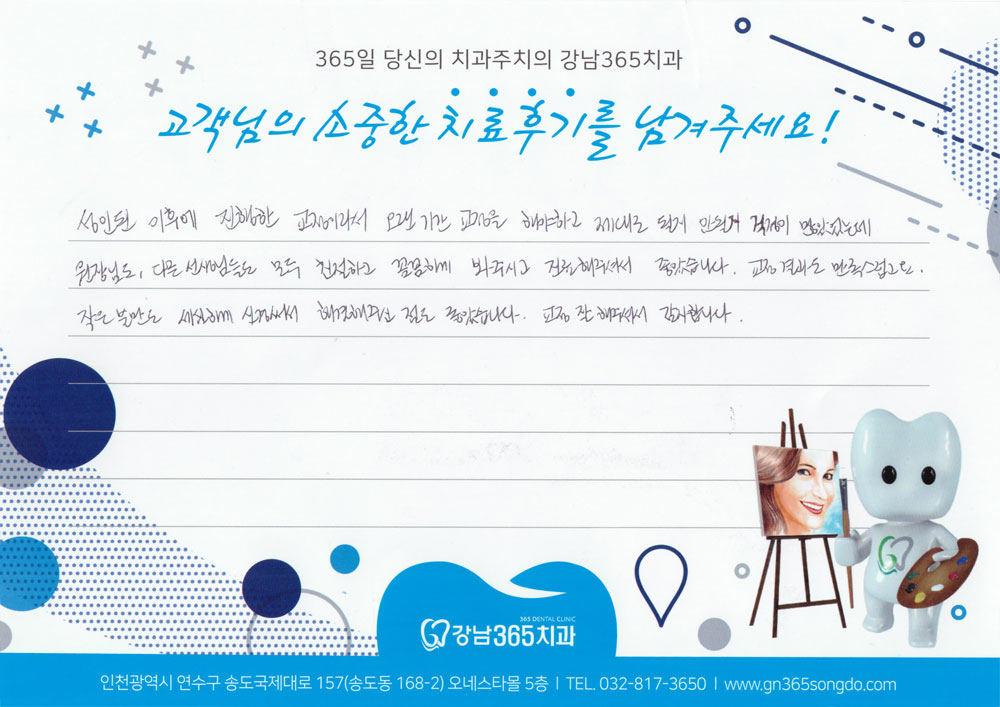 365일 당신의 치과주치의 강남365치과
고객님의 소중한 치료후기를 남겨주세요!
성인된 이후에 진행한 교정이라서 오랜기간 교정을 해야하고 제대로 될지 안될지 걱정이 많았었는데
원장님도, 다른 선생님들도 모두 친절하고 꼼꼼하게 봐주시고 진료해주셔서 좋았습니다. 교정결과도 만족스럽고요.
작은 불만도 세심하게 신경써서 해결해주신 점도 좋았습니다. 교정 잘 해주셔서 감사합니다.
365 DENTAL CLINIC
강남365치과
인천광역시 연수구 송도국제대로 157(송도동 168-2) 오네스타몰 5층 | TEL. 032-817-3650 | www.gn365songdo.com